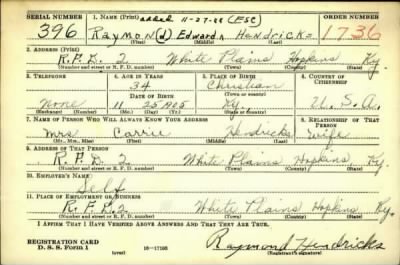 SERIAL NUMBER 1. NAME (Print) added 11-27-44 (ESC) ORDER NUMBER
396 Raymon(d) Edward Hendricks 1736
(First) (Middle) (Last)
2. ADDRESS (Print)
R.F.D. 2 White Plains Hopkins Ky.
(Number and street or R. F. D. number) (Town) (County) (State)
3. TELEPHONE 4. AGE IN YEARS 5. PLACE OF BIRTH 6. COUNTRY OF CITIZENSHIP
34 Christian
DATE OF BIRTH (Town or county)
None 11 25 1905 Ky. U.S.A.
(Exchange) (Number) (Mo.) (Day) (Yr.) (State or country)
7. NAME OF PERSON WHO WILL ALWAYS KNOW YOUR ADDRESS 8. RELATIONSHIP OF THAT PERSON
Mrs Carrie Hendricks Wife
(Mr., Mrs., Miss) (First) (Middle) (Last)
9. ADDRESS OF THAT PERSON
R.F.D. 2 White Plains Hopkins, Ky.
(Number and street or R. F. D. number) (Town) (County) (State)
10. EMPLOYER'S NAME
Self
11. PLACE OF EMPLOYMENT OR BUSINESS
R.F.D. 2 White Plains Hopkins Ky.
(Number and street or R. F. D. number) (Town) (County) (State)
I AFFIRM THAT I HAVE VERIFIED ABOVE ANSWERS AND THAT THEY ARE TRUE.
REGISTRATION CARD Raymond Hendricks
D. S. S. Form 1 (over) 16-17105 (Registrant's signature)